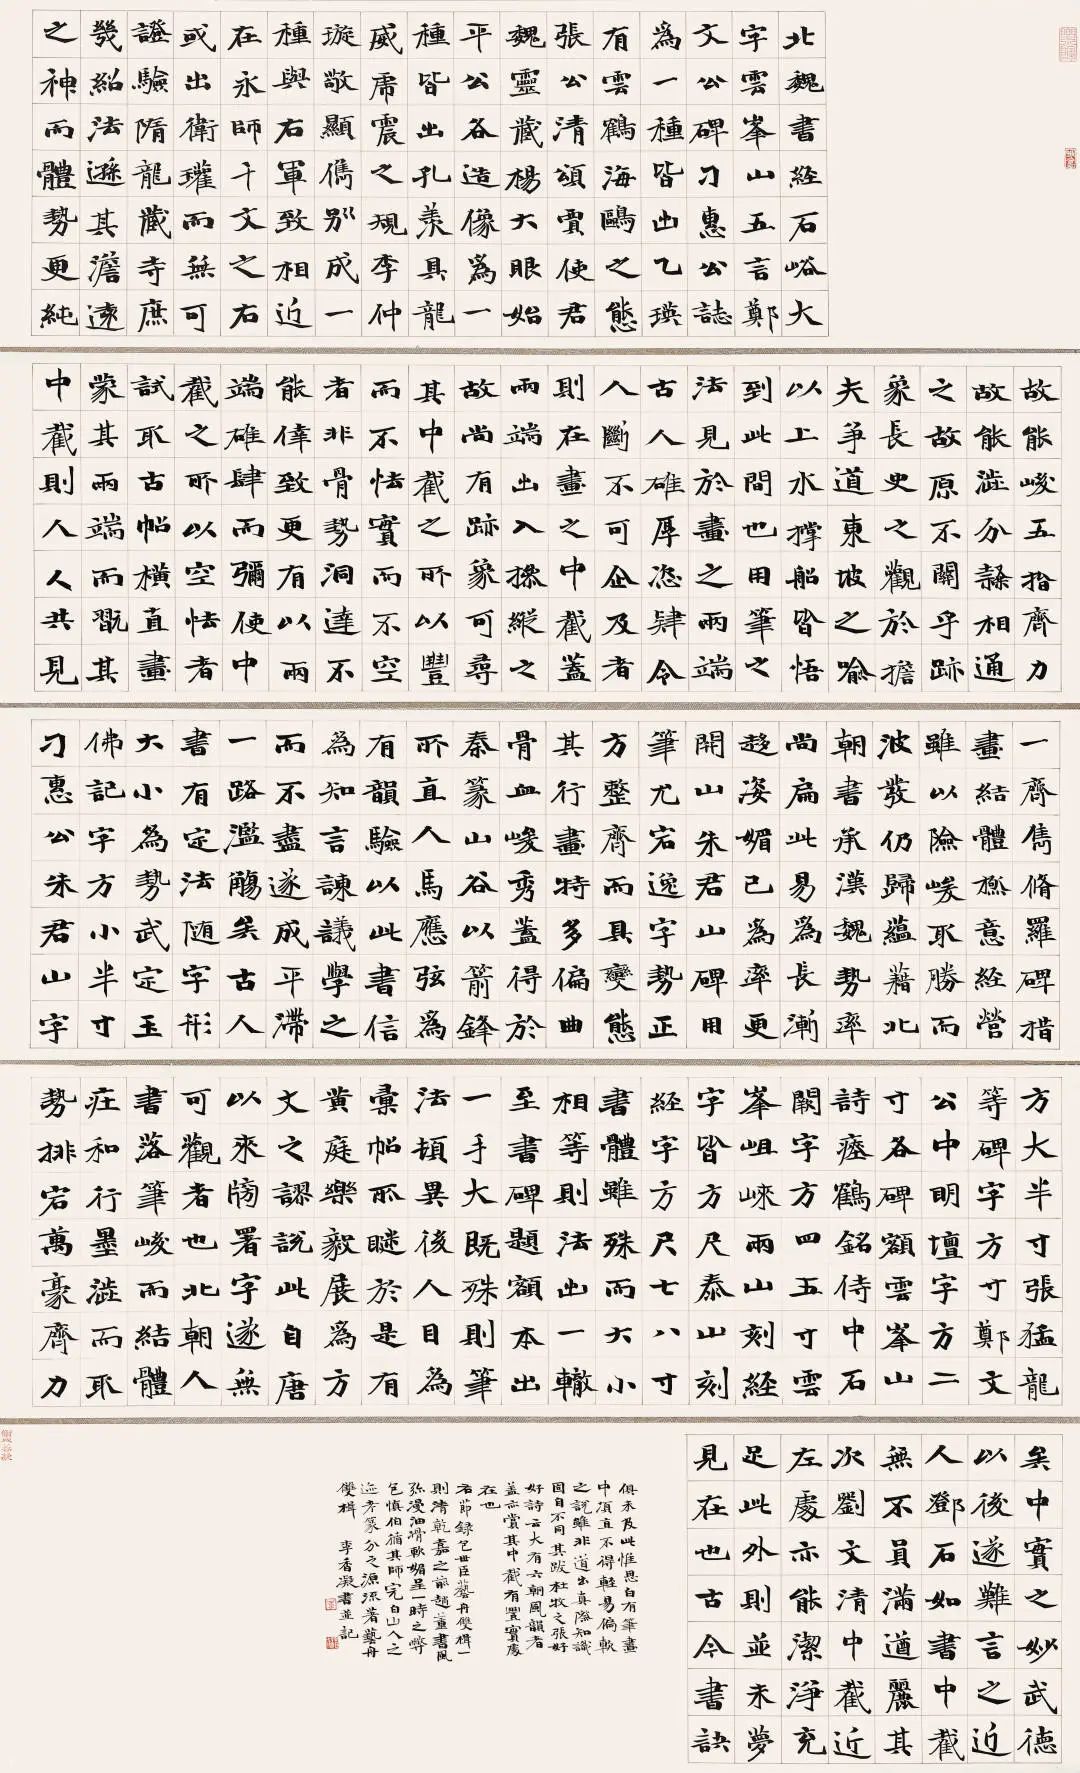 北魏書經石峪大
字雲峯山五言鄭
文公碑刁惠公誌
為一種皆出乙瑛
有雲鶴海鷗之態
張公清頌賈使君
魏靈藏楊大眼始
平公各造像為一
種皆出孔羨具龍
威虎震之規李仲
璇敬顯儁別成一
種與右軍致相近
在永師千文之右
或出衛瓘而無可
證驗隋龍藏寺庶
幾紹法遜其澹遠
之神而體勢更純
故能峻五指齊力
故能澁分隸相通
之故原不關乎跡
象長史之觀於擔
夫爭道東坡之喻
以上水撑船皆悟
到此間也用筆之
法見於畫之兩端
古人雄厚恣肆令
人斷不可企及者
則在畫之中截蓋
兩端出入操縱之
故尚有跡象可尋
其中截之所以豐
而不怯實而不空
者非骨勢洞達不
能偉致更有以兩
端雄肆而彌使中
截之所以空怯者
試取古帖橫直畫
蒙其兩端而翫其
中截則人人共見
一齊雋脩羅碑措
畫結體應意經營
雖以險峻取勝而
波發仍歸蘊藉北
朝書承漢魏勢率
尚扁此易為長漸
趍姿媚已為率更
開山朱君山碑用
筆尤宕逸字勢正
方整齊而具變態
其行畫特多偏曲
骨血峻秀蓋得於
秦篆山谷以箭鋒
所直人馬應弦為
有韻驗以此書信
為知言諫議學之
而不盡遂成平滯
一路濫觴矣古人
書有定法隨字形
大小為勢武定玉
佛記字方小半寸
刁惠公朱君山字
方大半寸張猛龍
等碑字方寸鄭文
公中明壇字方二
寸各碑額雲峯山
詩瘞鶴銘侍中石
闕字方四五寸雲
峯岨崍兩山刻經
字皆方尺泰山刻
經字方尺七八寸
書體雖殊而大小
相等則法出一轍
至書碑題額本出
一手大既殊則筆
法頓異後人目為
彙帖所瞇於是有
黄庭樂毅展為方
文之謬說此自唐
以來牓署字遂無
可觀者也北朝人
書落筆峻而結體
莊和行墨澁而取
勢排宕萬豪齊力
矣中實之妙武德
以後遂難言之近
人鄧石如書中截
無不員滿遒麗其
次劉文清中截近
左處亦能潔淨充
足此外則並未夢
見在也古今書訣
俱未及此惟思白有筆畫
中須直不得輕易偏軟
之說雖非道出真際知識
固自不同其跋杜牧之張好
好詩云大有六朝風韻者
蓋亦賞其中截有豐實處
在也
右節錄包世臣藝舟雙楫一
則清乾嘉之前趙董書風
瀰漫油滑軟媚呈一時之弊
包慎伯循其師完白山人之
迹考篆分之源流著藝舟
雙楫　李香凝書並記